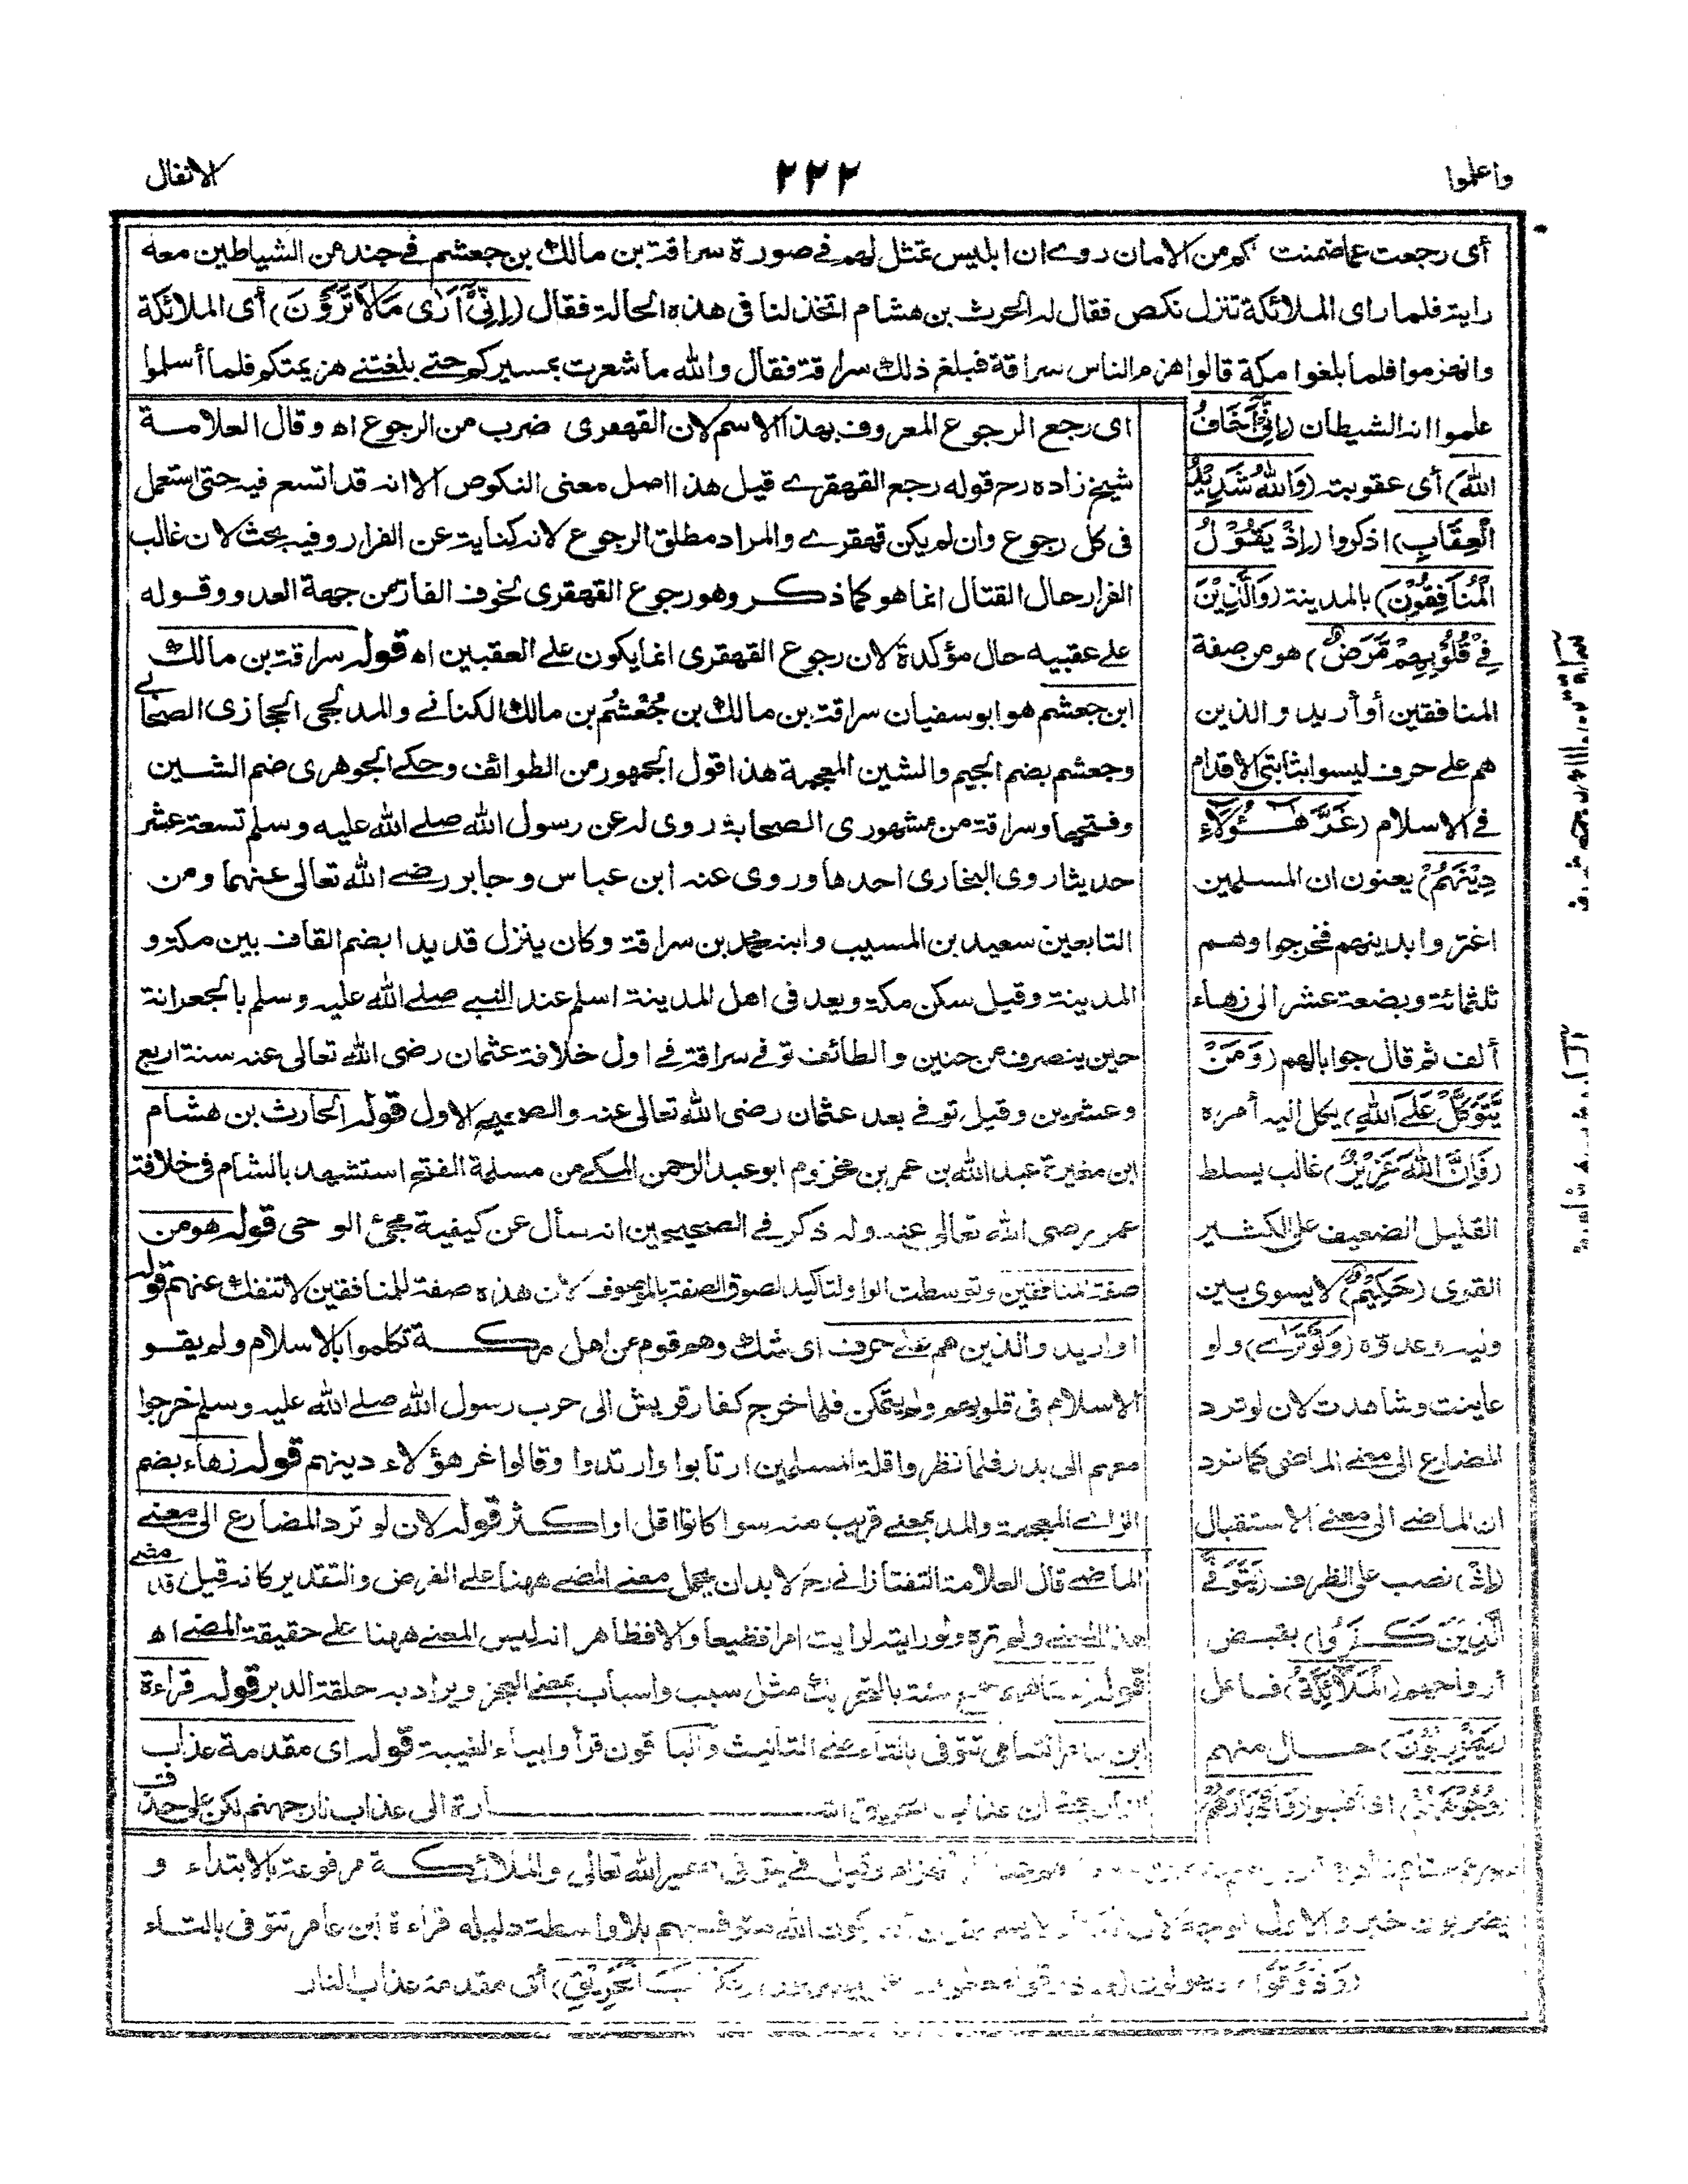 واعلموا
٢٢٢
الانفال
أى رجعت عما ضمنت لكم من الامان روى ان ابليس تمثل لهم فى صورة سراقة بن مالك بن جعشم فى جند من الشياطين معه
راية فلما راى الملائكة تنزل نكص فقال له الحرث بن هشام اتخذلنا فى هذه الحالة فقال (إِنِّىٓ أَرَىٰ مَا لَا تَرَوْنَ) أى الملائكة
وانهزموا فلما بلغوا مكة قالوا هزم الناس سراقة فبلغ ذلك سراقة فقال والله ما شعرت بمسيركم حتى بلغتنى هزيمتكم فلما أسلموا
علموا انه الشيطان (إِنِّىٓ أَخَافُ
اللهَ) أى عقوبته (وَاللهُ شَدِيْدُ
الْعِقَابِ) اذكروا (إِذْ يَقُوْلُ
الْمُنَافِقُوْنَ) بالمدينة (وَالَّذِيْنَ
فِىْ قُلُوْبِهِمْ مَّرَضٌ) هو من صفة
المنافقين أو أريد والذين
هم على حرف ليسوا بثابتى الاقدام
فى الاسلام (غَرَّ هٰٓؤُلَآءِ
دِيْنُهُمْ) يعنون ان المسلمين
اغتروا بدينهم فخرجوا وهم
ثلثمائة وبضعة عشر الى زهاء
ألف ثم قال جوابا لهم (وَمَنْ
يَّتَوَكَّلْ عَلَى اللهِ) يكل اليه أمره
(فَإِنَّ اللهَ عَزِيْزٌ) غالب يسلط
القليل الضعيف على الكثير
القوى (حَكِيْمٌ) لا يسوى بين
وليه وعدوه (وَلَوْ تَرٰى) ولو
عاينت وشاهدت لان لو ترد
المضارع الى معنى الماضى كما ترد
ان الماضى الى معنى الاستقبال
(إِذْ) نصب على الظرف (يَتَوَفَّى
الَّذِيْنَ كَفَرُوا) بقبض
أرواحهم (الْمَلٰٓئِكَةُ) فاعل
(يَضْرِبُوْنَ) حال منهم
اى رجع الرجوع المعروف بهذا الاسم لان القهقرى ضرب من الرجوع اه وقال العلامة
شيخ زاده رح قوله رجع القهقرى قيل هذا اصل معنى النكوص الا انه قد اتسع فيه حتى استعمل
فى كل رجوع وان لم يكن قهقرى والمراد مطلق الرجوع لانه كناية عن الفرار وفيه بحث لان غالب
الفرار حال القتال انما هو كما ذكر وهو رجوع القهقرى لخوف الفار من جهة العدو وقوله
على عقبيه حال مؤكدة لان رجوع القهقرى انما يكون على العقبين اه قوله سراقة بن مالك
ابن جعشم هو ابو سفيان سراقة بن مالك بن جُعْشُم بن مالك الكنانى والمدلجى الحجازى الصحابى
وجعشم بضم الجيم والشين المعجمة هذا قول الجمهور من الطوائف وحكى الجوهرى ضم الشين
وفتحها وسراقة من مشهورى الصحابة روى له عن رسول الله صلى الله عليه وسلم تسعة عشر
حديثا روى البخارى احدها وروى عنه ابن عباس وجابر رضى الله تعالى عنهما ومن
التابعين سعيد بن المسيب وابنه محمد بن سراقة وكان ينزل قديدا بضم القاف بين مكة و
المدينة وقيل سكن مكة ويعد فى اهل المدينة اسلم عند النبى صلى الله عليه وسلم بالجعرانة
حين ينصرف من حنين والطائف توفى سراقة فى اول خلافة عثمان رضى الله تعالى عنه سنة اربع
وعشرين وقيل توفى بعد عثمان رضى الله تعالى عنه والصحيح الاول قوله الحارث بن هشام
ابن مغيرة عبد الله بن عمر بن مخزوم ابو عبد الرحمن المكى من مسلمة الفتح استشهد بالشام فى خلافة
عمر رضى الله تعالى عنه وله ذكر فى الصحيحين انه سأل عن كيفية مجئ الوحى قوله هو من
صفة المنافقين وتوسطت الواو لتاكيد لصوق الصفة بالموصوف لان هذه صفة للمنافقين لا تنفك عنهم قوله
او اريد والذين هم على حرف اى شك وهم قوم من اهل مكة تكلموا بالاسلام ولم يقو
الاسلام فى قلوبهم ولم يتمكن فلما خرج كفار قريش الى حرب رسول الله صلى الله عليه وسلم خرجوا
معهم الى بدر فلما نظروا قلة المسلمين ارتابوا وارتدوا وقالوا غر هؤلاء دينهم قوله زهاء بضم
الزاى المعجمة والمد بمعنى قريب منه سوا كانوا اقل او اكثر قوله لان لو ترد المضارع الى معنى
الماضى قال العلامة التفتازانى رح لا بد ان يحمل معنى المضى ههنا على الفرض والتقدير كانه قيل قد مضى
هذا المعنى ولم تره ولو رايته لرايت امرا فظيعا والا فظاهر انه ليس المعنى ههنا على حقيقة المضى اه
مثل سبب واسباب بمعنى العجز ويراد به حلقة الدبر قوله قراءة
ابن عامر الشامى تتوفى بالتاء على التانيث والباقون قرأوا بياء الغيبة قوله اى مقدمة عذاب
الى عذاب نار جهنم لكن على حذف
وقيل فى يتوفى ضمير الله تعالى والملائكة مرفوعة بالابتداء و
يضربون خبر والاول بلا واسطة دليله قراءة ابن عامر تتوفى بالتاء
(وَذُوْقُوْا) الْحَرِيْقِ) أى مقدمة عذاب النار